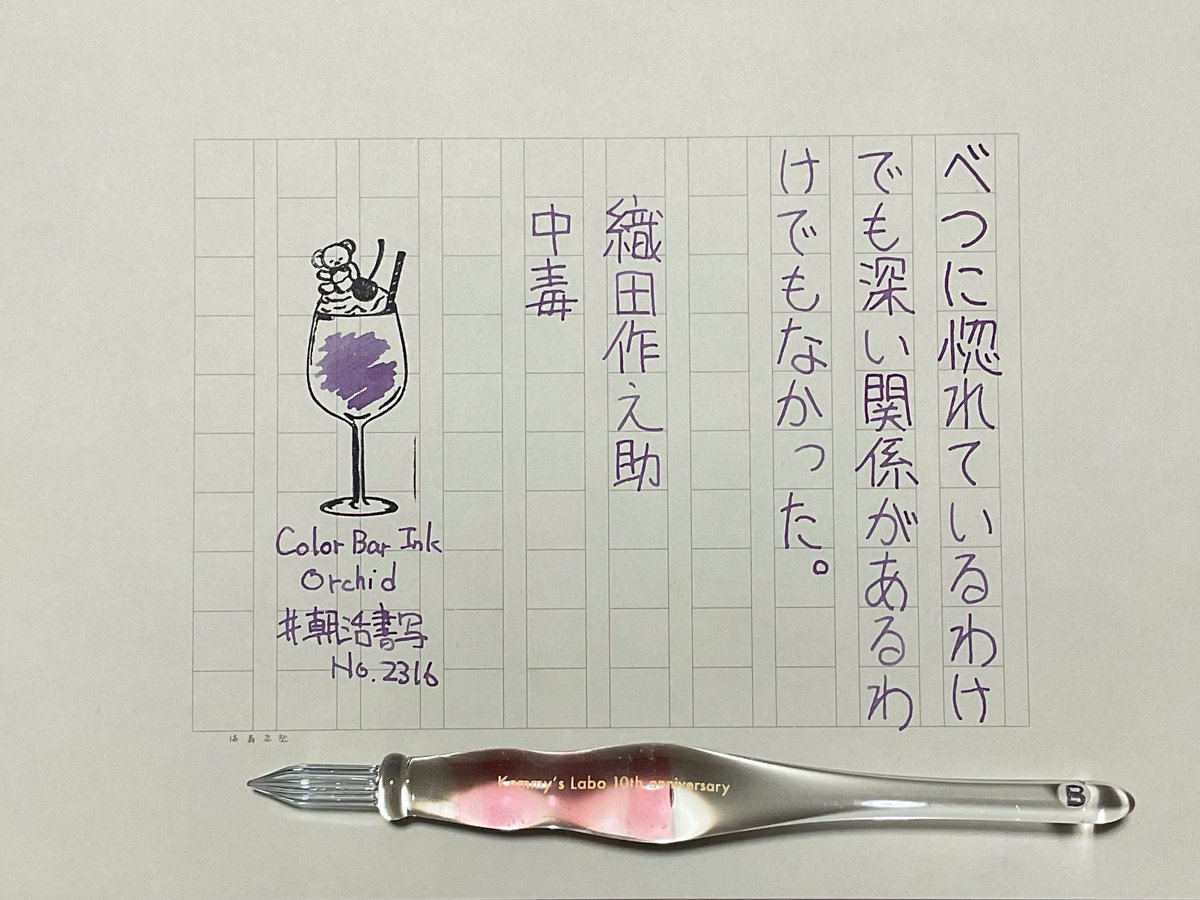 べつに惚れているわけ
でも深い関係があるわ
けでもなかった。
織田作之助
中毒
Color Bar Ink
Orchid
#朝活書写
No.2316
Kemmy's Labo 10th anniversary
B